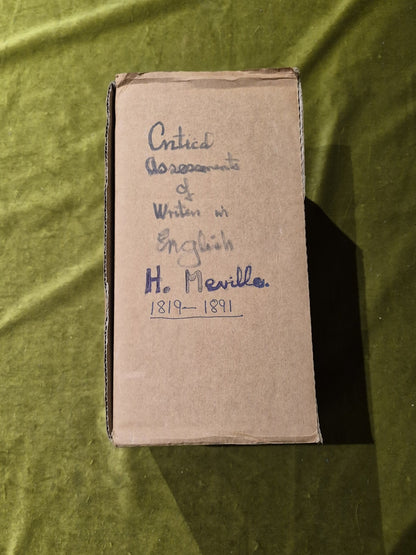 Critical
Assessments
of
Writers in
English
H. Meville.
1819–1891